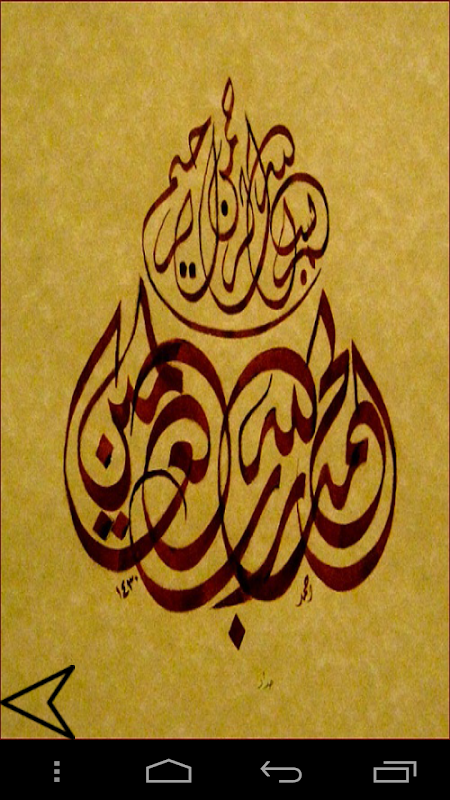 بسم الله الرحمن الرحيم
الحمد لله رب العالمين
احمد
١٤٣٠